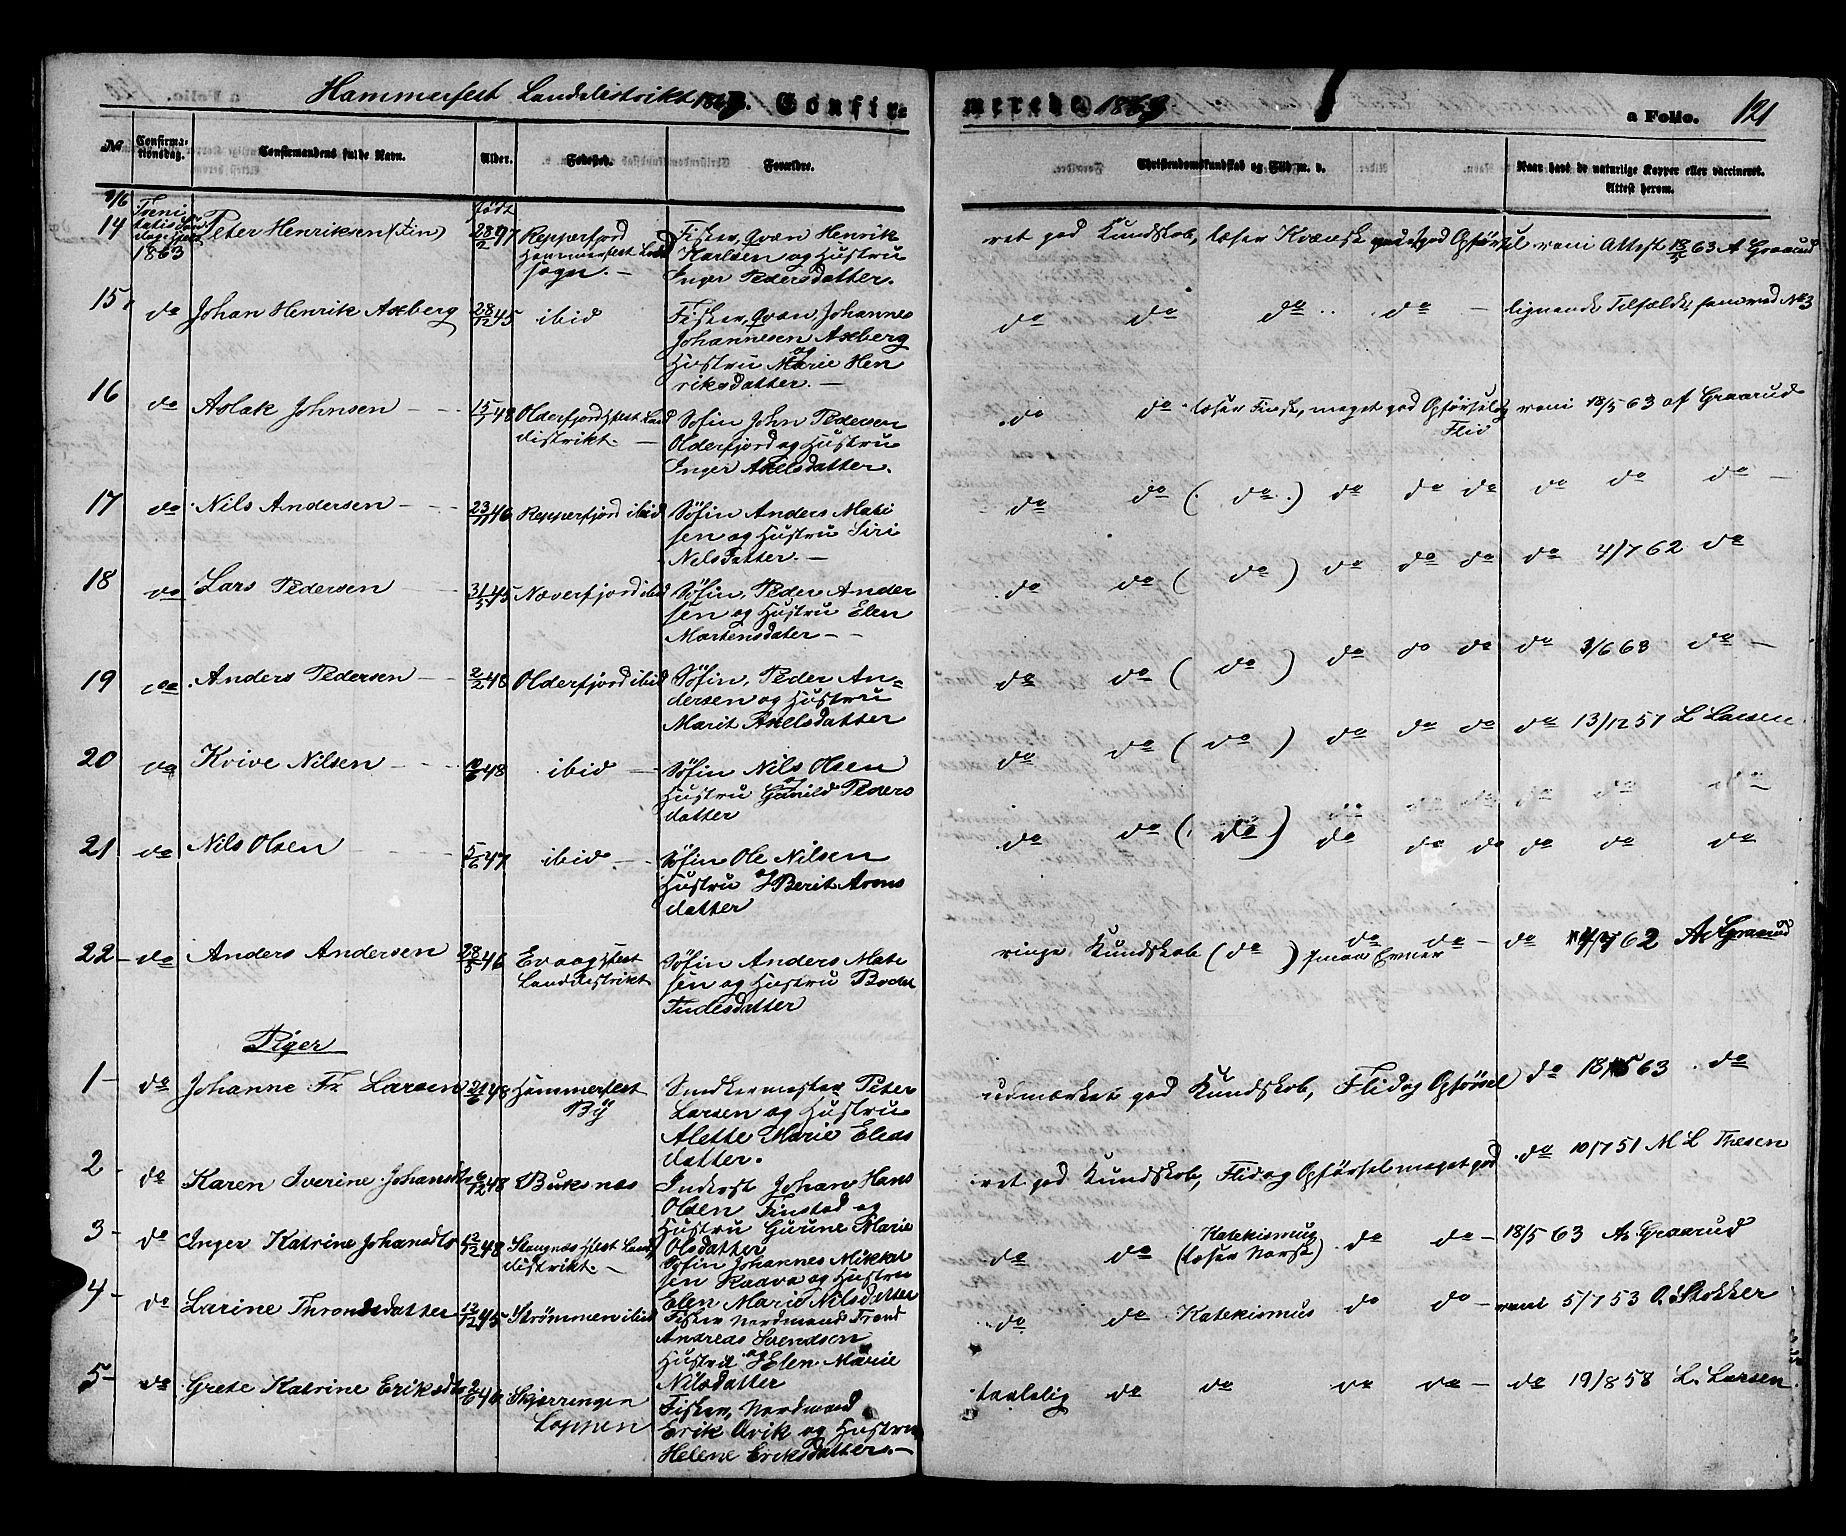 Hammerfest Landdistrikt 1863. Confirmerede 1863 a Folio. 121
No Confirmationsdag. Confirmandens fulde Navn. Alder. Fødested. Forældre. Christendomskundskab og Flid m. v. Naar havt de naturlige Kopper eller vaccineret. Attest herom.
14 Peter Henriksen (Fin) født 28/2 47 Repperfjord
1863 Hammerfest Land
sogn. –
Fisker, Qvæn Henrik
Karlsen og Hustru
Inger Pedersdatter.
ret god Kundskab, læser Kvænsk god Opførsel
vacc. Attest 18/5 63 A Graarud
15 do Johan Henrik Axberg 28/12 45 ibid
Fisker, Qvæn, Johannes
Johannesen Axberg
og Hustru Marie Hen
riksdatter. –
do do do do – lignende Tilfælde, som ved No 3
16 do Aslak Johnsen 15/7 48 Olderfjord Hfest Land
distrikt. –
Søfin John Pedersen
Olderfjord og Hustru
Inger Axelsdatter.
do do læser Finsk, meget god Opførsel og
Flid
vacc 18/5 63 af Graarud
17 do Nils Andersen 23/11 46 Repperfjord ibid
Søfin Anders Mati
sen og Hustru Siri
Nilsdatter. –
do do (do.) do do do do do do –
18 do Lars Pedersen 31/5 45 Næverfjord ibid
Søfin, Peder Ander
sen og Hustru Elen
Martensdater – –
do do (do) do do do do 4/7 62 do
19 do Anders Pedersen 2/2 48 Olderfjord ibid
Søfin, Peder An=
dersen og Hustru
Marit Axelsdatter
do do (do) do do do do 3/6 63 do –
20 do Krive Nilsen 10/6 48 ibid
Søfin Nils Olsen
og Hustru Gunild Peders
datter
do do (do) do do do do 13/12 51 L Larsen
21 do Nils Olsen 5/6 47 ibid
Søfin Ole Nilsen
og Hustru Berit Arons
datter
do do (do) do do do do do do
22 – do Anders Andersen 28/5 46 Hfest
Landdistrikt
Søfin Anders Mati
sen og Hustru
ringe Kundskab (do) do do – do 4/7 62 A Graarud
Piger
1 – do Johanne Fr Larsen 21/6 48 Hammerfest
By
Peter
Larsen og Hustru
Alette Marie Elias
datter.
udmærket god Kundskab, Flid og Opførsel do 18/5 63 do
2 – do Karen Iverine Johansdtr 6/12 48 Buksnæs
Inderst Johan Hans
Olsen Finstad og
Hustru Gunne Marie
Olsdatter
ret god Kundskab, Flid og Opførsel meget god do 10/7 51 M L Thesen
3 – do Inger Katrine Johansdtr 12/12 48 Stangnæs Hfest Land
distrikt. –
Søfin Johannes Mikkel
sen Kaava og Hustru
Elen Marie Nilsdatter
do do Katekismus
(læser Norsk)
do do – 18/5 63 A Graarud
4 – do Larine Throndsdatter 13/12 45 Strømmen ibid
Fisker Nordmand Trond
Andreas Svendsen
og Hustru Elen Marie
Nilsdatter
do do Katekismus do do – vacc 5/7 53 O. Stokker
5 – do Grete Katrine Eriksdtr 2/6 46 Skjerringen
Loppen
Fisker, Nordmand
Erik Qvik og Hustru
Helene Eriksdatter. –
taalelig do do do do – do 19/8 58 L. Larsen